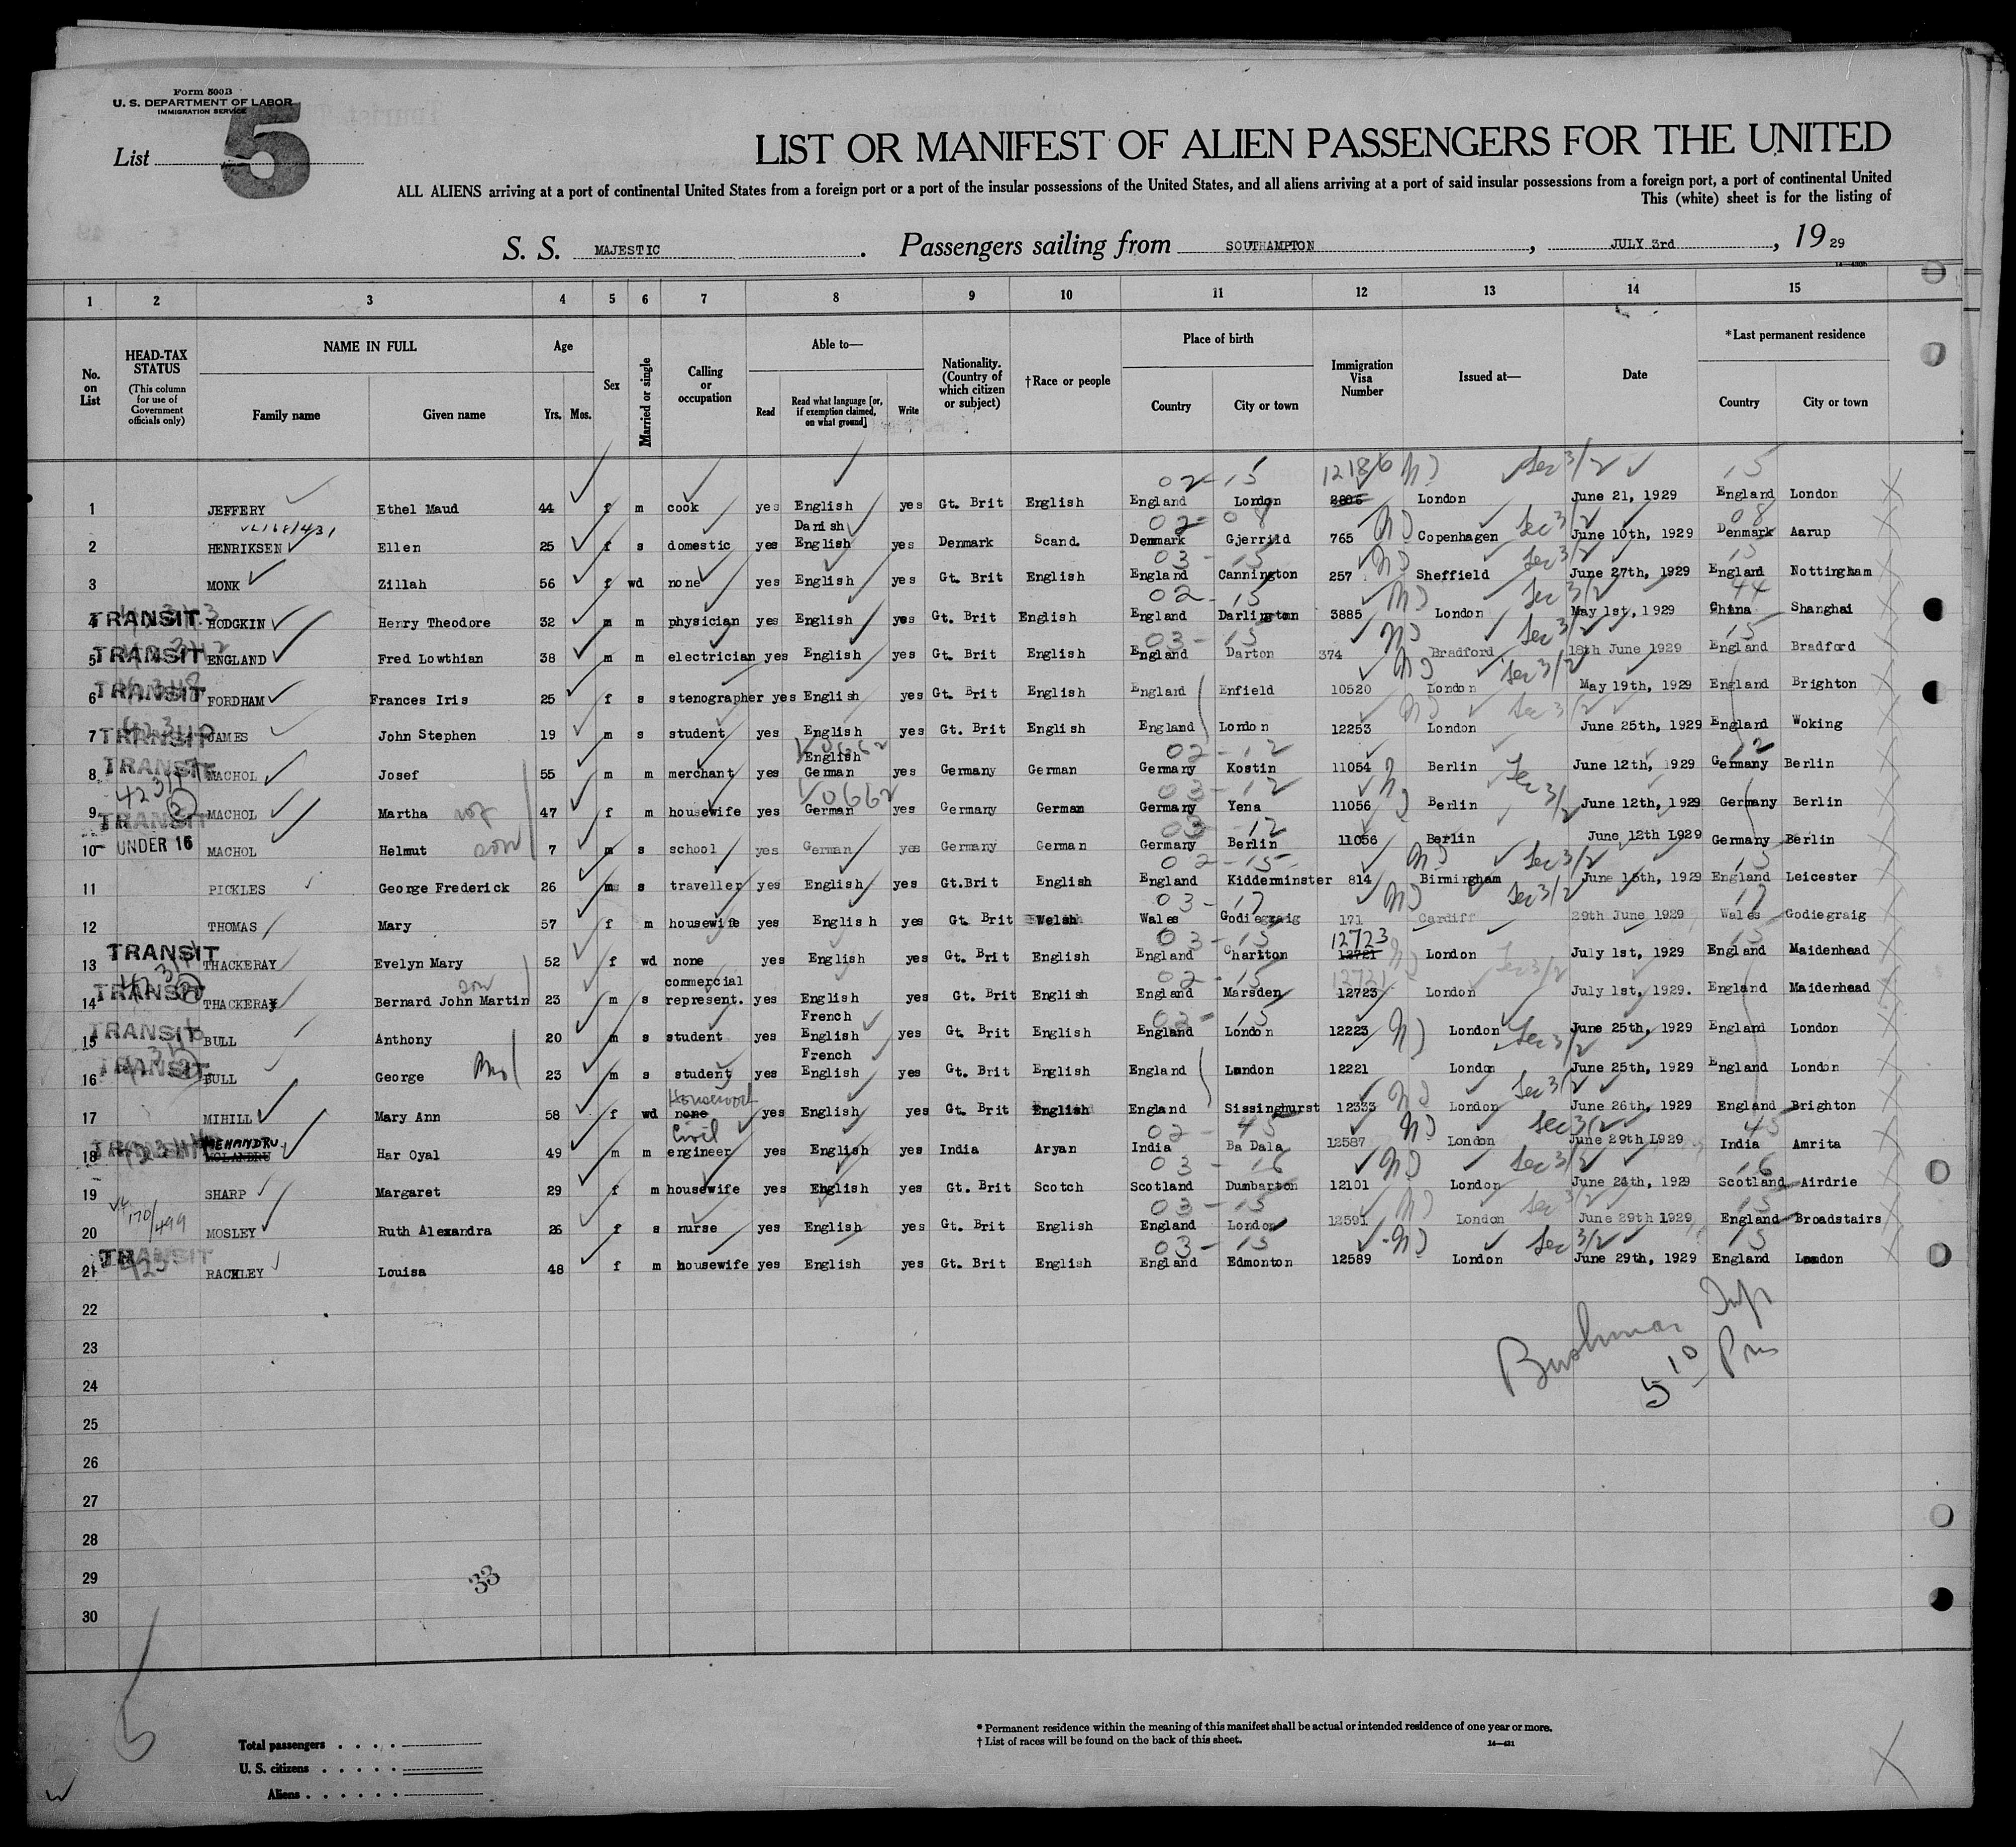 Form 500B
U. S. DEPARTMENT OF LABOR
IMMIGRATION SERVICE
List 5
LIST OR MANIFEST OF ALIEN PASSENGERS FOR THE UNITED
ALL ALIENS arriving at a port of continental United States from a foreign port or a port of the insular possessions of the United States, and all aliens arriving at a port of said insular possessions from a foreign port, a port of continental United
This (white) sheet is for the listing of
S. S. MAJESTIC. Passengers sailing from SOUTHAMPTON, JULY 3rd, 1929
1 2 3 4 5 6 7 8 9 10 11 12 13 14 15
No. on List
HEAD-TAX STATUS (This column for use of Government officials only)
NAME IN FULL Family name Given name
Age Yrs. Mos.
Sex
Married or single
Calling or occupation
Able to— Read Read what language [or, if exemption claimed, on what ground] Write
Nationality. (Country of which citizen or subject)
†Race or people
Place of birth Country City or town
Immigration Visa Number
Issued at—
Date
*Last permanent residence Country City or town
12186 Sec 3/2
1 JEFFERY Ethel Maud 44 f m cook yes English yes Gt. Brit English England London London June 21, 1929 England London
Danish
2 HENRIKSEN Ellen 25 f s domestic yes English yes Denmark Scand. Denmark Gjerrild 765 Copenhagen June 10th, 1929 Denmark Aarup
3 MONK Zillah 56 f wd none yes English yes Gt. Brit English England Cannington 257 Sheffield June 27th, 1929 England Nottingham
4 TRANSIT HODGKIN Henry Theodore 32 m m physician yes English yes Gt. Brit English England Darlington 3885 London May 1st, 1929 China Shanghai
5 TRANSIT ENGLAND Fred Lowthian 38 m m electrician yes English yes Gt. Brit English England Darton 374 Bradford 18th June 1929 England Bradford
6 TRANSIT FORDHAM Frances Iris 25 f s stenographer yes English yes Gt. Brit English England Enfield 10520 London May 19th, 1929 England Brighton
7 TRANSIT JAMES John Stephen 19 m s student yes English yes Gt. Brit English England London 12253 London June 25th, 1929 England Woking
English
8 TRANSIT MACHOL Josef 55 m m merchant yes German yes Germany German Germany Kostin 11054 Berlin June 12th, 1929 Germany Berlin
9 TRANSIT MACHOL Martha 47 f m housewife yes German yes Germany German Germany Yena 11056 Berlin June 12th, 1929 Germany Berlin
10 UNDER 16 MACHOL Helmut son 7 m s school yes German yes Germany German Germany Berlin 11056 Berlin June 12th 1929 Germany Berlin
11 PICKLES George Frederick 26 m s traveller yes English yes Gt.Brit English England Kidderminster 814 Birmingham June 15th, 1929 England Leicester
12 THOMAS Mary 57 f m housewife yes English yes Gt. Brit Welsh Wales Godiegraig 171 Cardiff 29th June 1929 Wales Godiegraig
12723
13 TRANSIT THACKERAY Evelyn Mary 52 f wd none yes English yes Gt. Brit English England Charlton 12721 London July 1st, 1929 England Maidenhead
son commercial 12721
14 TRANSIT THACKERAY Bernard John Martin 23 m s represent. yes English yes Gt. Brit English England Marsden 12723 London July 1st, 1929. England Maidenhead
French
15 TRANSIT BULL Anthony 20 m s student yes English yes Gt. Brit English England London 12223 London June 25th, 1929 England London
French
16 TRANSIT BULL George Bro 23 m s student yes English yes Gt. Brit English England London 12221 London June 25th, 1929 England London
Housework
17 MIHILL Mary Ann 58 f wd none yes English yes Gt. Brit English England Sissinghurst 12333 London June 26th, 1929 England Brighton
MEHANDRU Civil
18 TRANSIT Har Oyal 49 m m engineer yes English yes India Aryan India Ba Dala 12587 London June 29th 1929 India Amrita
19 SHARP Margaret 29 f m housewife yes English yes Gt. Brit Scotch Scotland Dumbarton 12101 London June 24th, 1929 Scotland Airdrie
170/499
20 MOSLEY Ruth Alexandra 26 f s nurse yes English yes Gt. Brit English England London 12591 London June 29th 1929 England Broadstairs
21 TRANSIT RACKLEY Louisa 48 f m housewife yes English yes Gt. Brit English England Edmonton 12589 London June 29th, 1929 England London
22
23
24
25
26
27
28
29
30
Bushman Insp
5 10 Pm
33
Total passengers
U. S. citizens
Aliens
* Permanent residence within the meaning of this manifest shall be actual or intended residence of one year or more.
† List of races will be found on the back of this sheet.
14—421